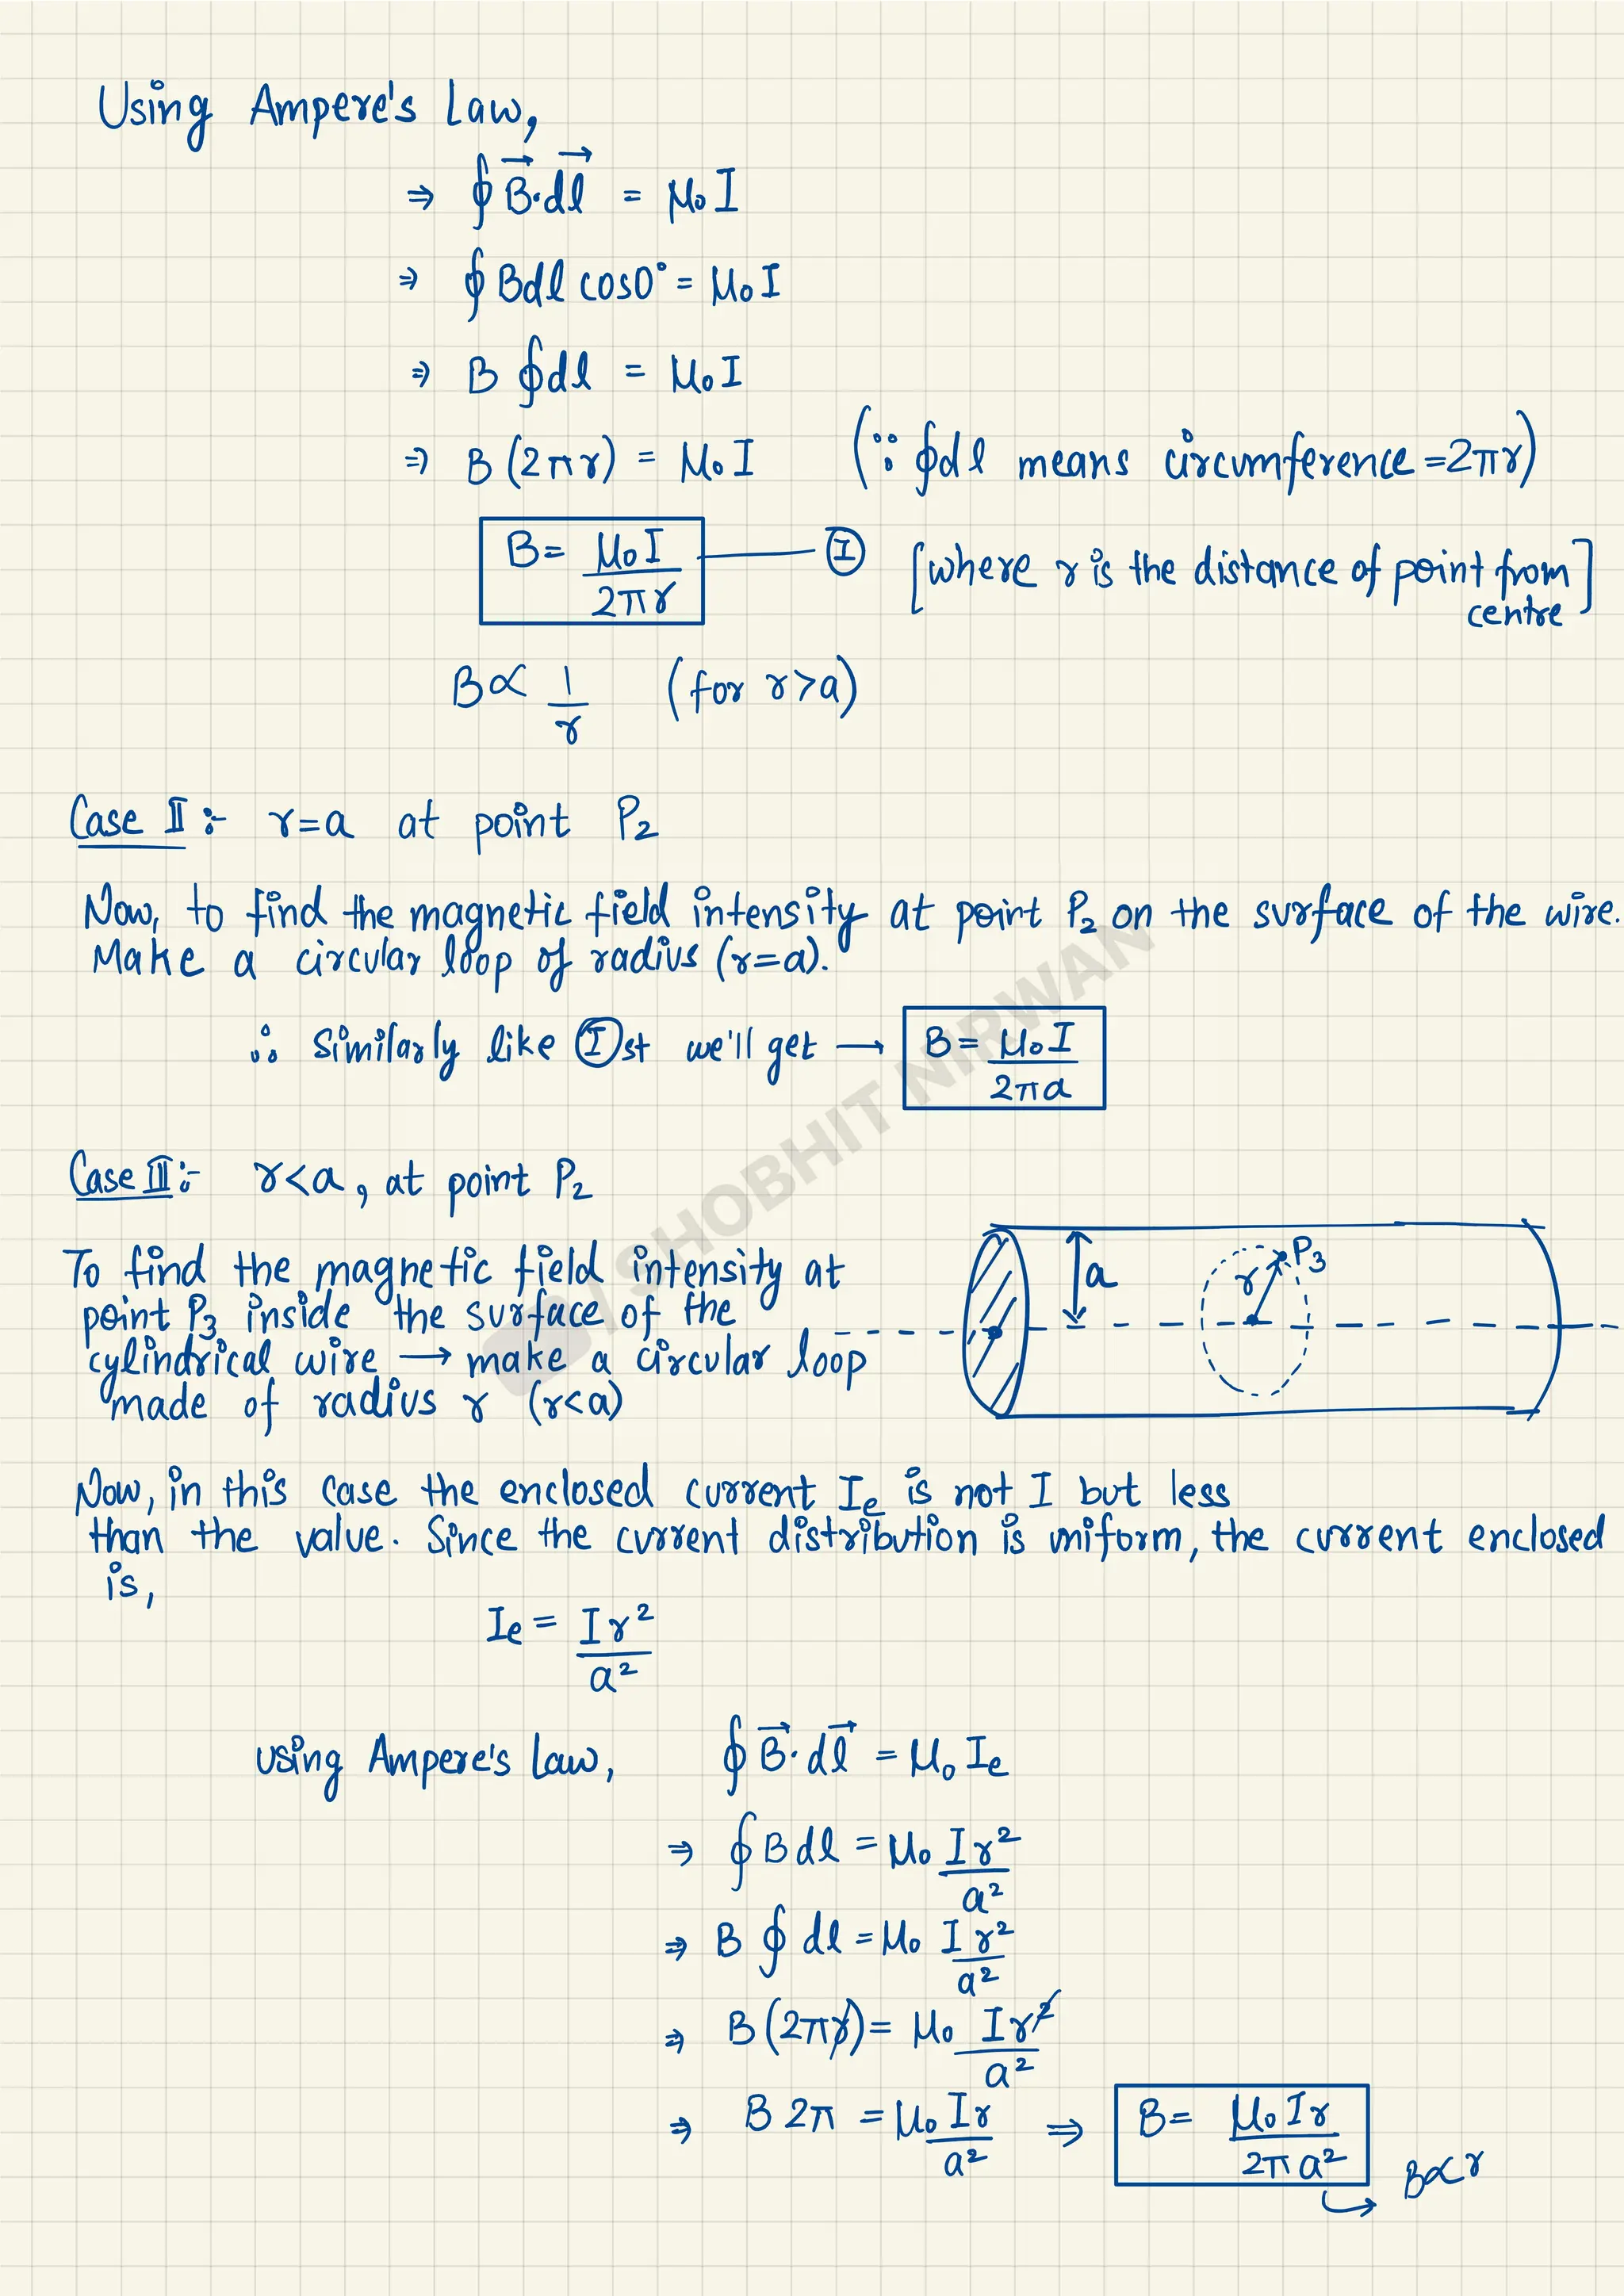 Using Ampere's Law,
⇒ ∮ B⃗·dl⃗ = μ₀I
⇒ ∮ Bdl cos0° = μ₀I
⇒ B ∮dl = μ₀I
⇒ B (2πr) = μ₀I (∵ ∮dl means circumference = 2πr)
B = μ₀I / 2πr —— Ⓘ [where r is the distance of point from centre]
B ∝ 1/r (for r>a)
Case II :- r=a at point P₂
Now, to find the magnetic field intensity at point P₂ on the surface of the wire.
Make a circular loop of radius (r=a).
∴ Similarly like Ⓘst we'll get → B = μ₀I / 2πa
Case III :- r<a, at point P₂
To find the magnetic field intensity at
point P₃ inside the surface of the
cylindrical wire → make a circular loop
made of radius r (r<a)
a
r
P₃
Now, in this case the enclosed current Iₑ is not I but less
than the value. Since the current distribution is uniform, the current enclosed
is,
Iₑ = Ir² / a²
using Ampere's law, ∮ B⃗·dl⃗ = μ₀Iₑ
⇒ ∮ B dl = μ₀ Ir² / a²
⇒ B ∮ dl = μ₀ Ir² / a²
⇒ B (2πr) = μ₀ Ir² / a²
⇒ B 2π = μ₀Ir / a² ⇒ B = μ₀Ir / 2πa²
B∝r
/ SHOBHIT NIRWAN